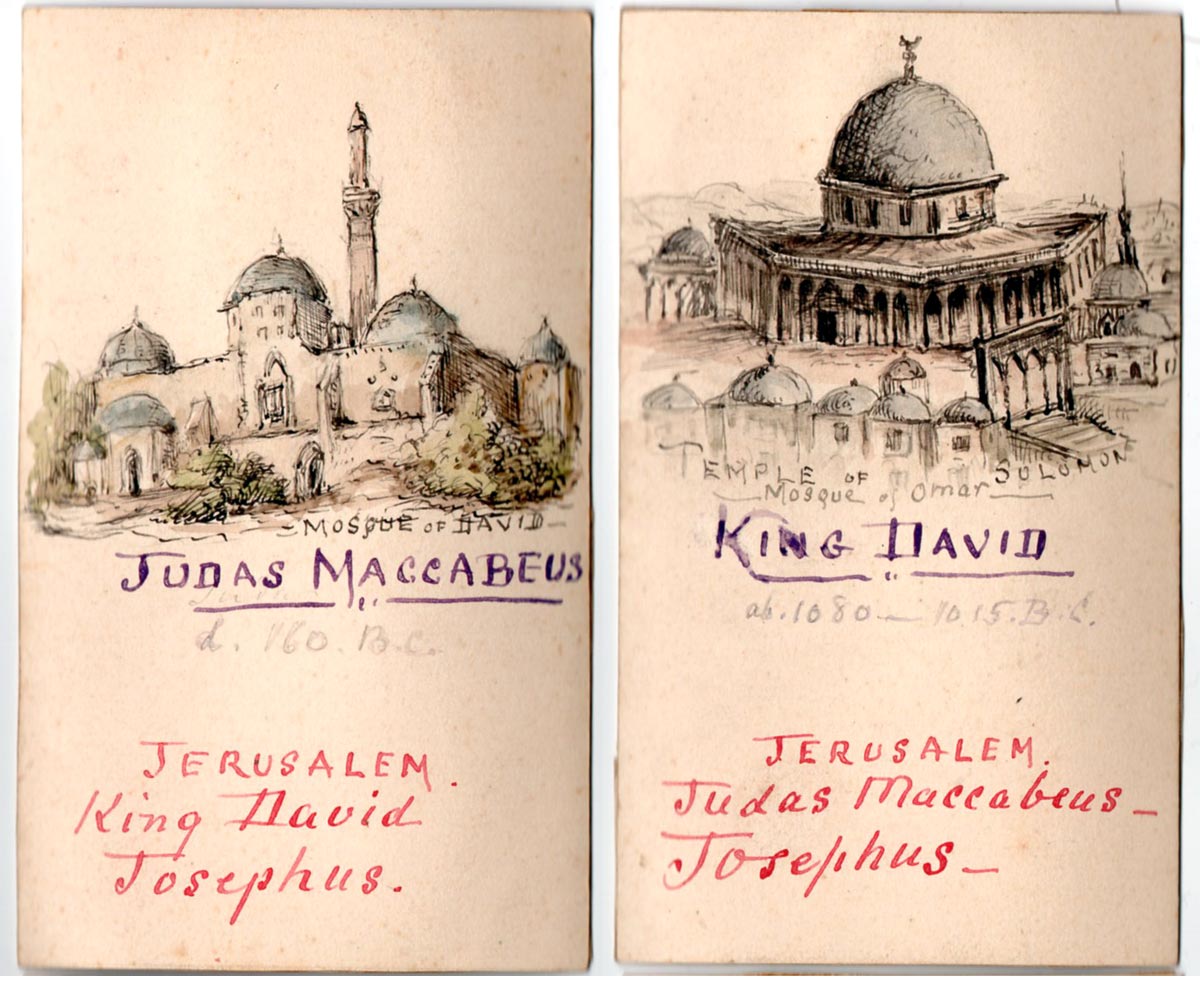 MOSQUE OF DAVID
JUDAS MACCABEUS
d. 160. B.C.
JERUSALEM.
King David
Josephus.
TEMPLE OF SOLOMON
Mosque of Omar
KING DAVID
ab. 1080 — 1015. B.C.
JERUSALEM.
Judas Maccabeus —
Josephus —